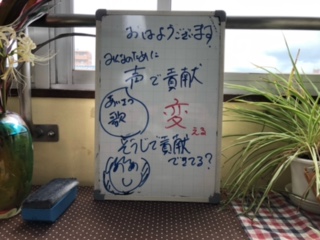 おはようございます
みんなのために
声で貢献
あいさつ
歌
変える
そうじで貢献
できてる？